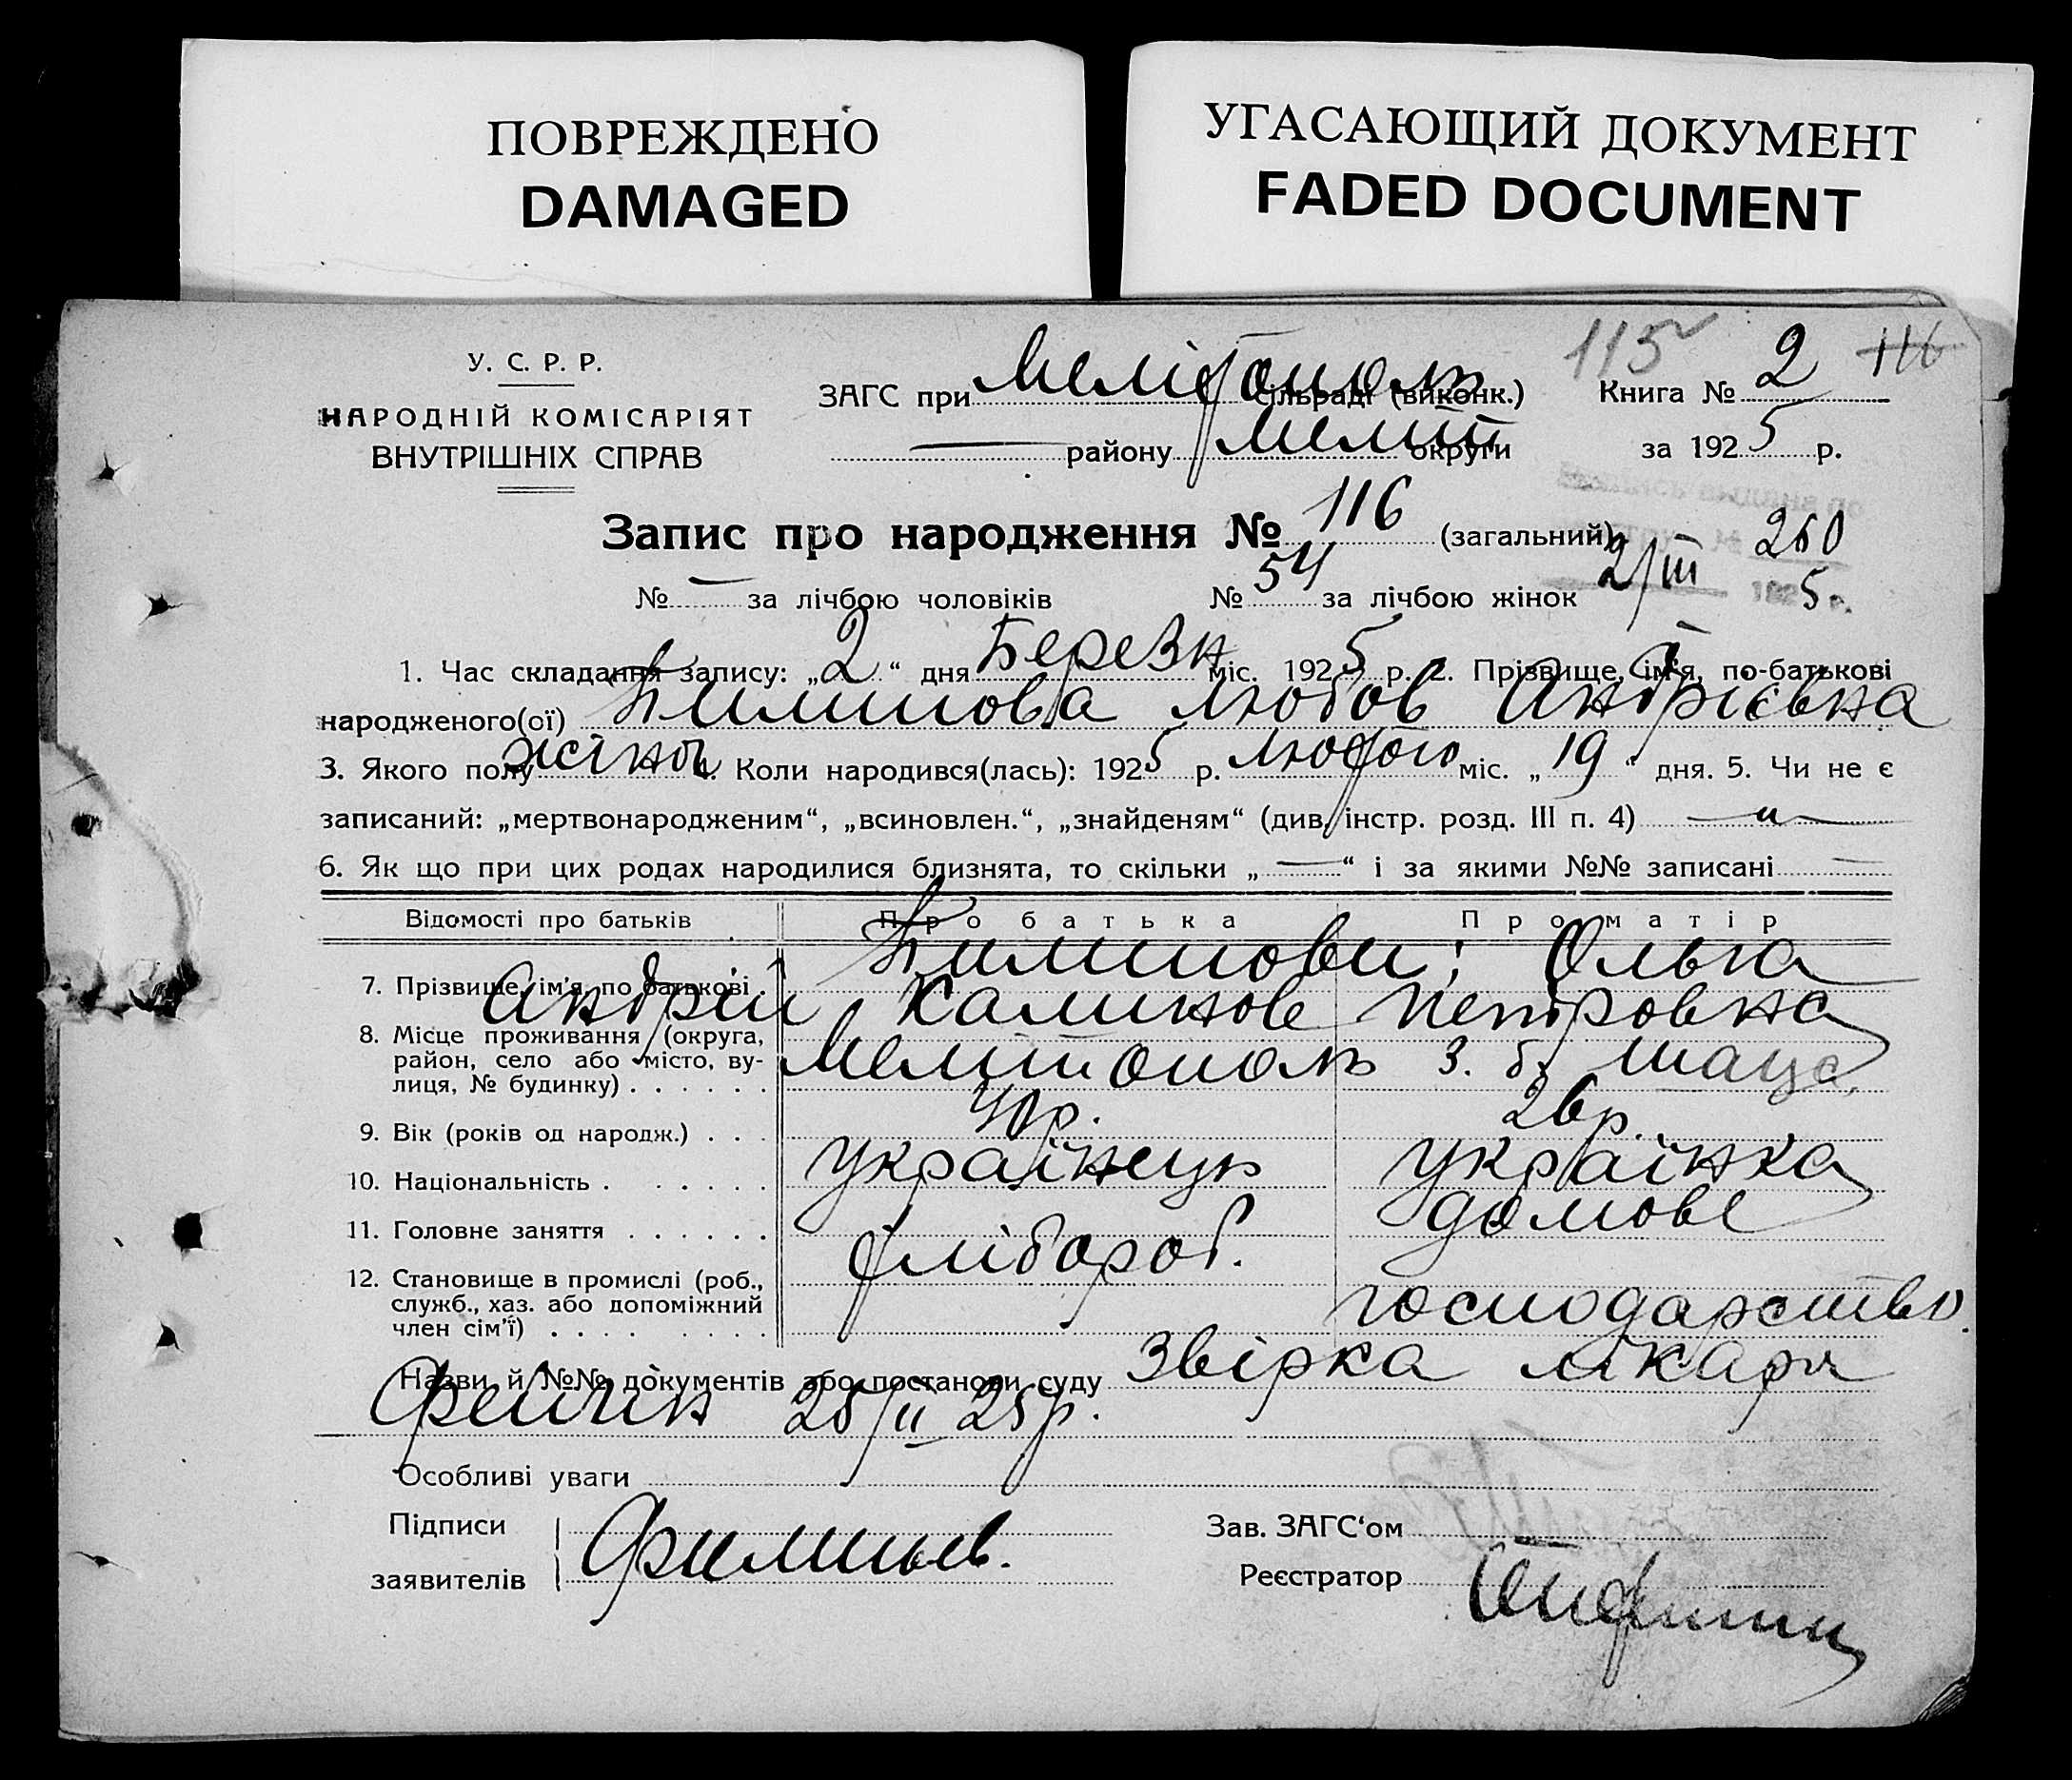 ПОВРЕЖДЕНО
DAMAGED
УГАСАЮЩИЙ ДОКУМЕНТ
FADED DOCUMENT
115 116
У. С. Р. Р.
НАРОДНІЙ КОМІСАРІЯТ
ВНУТРІШНІХ СПРАВ
ЗАГС при Мелітополь сільраді (виконк.)
району Меліт округи
Книга № 2
за 1925 р.
Запис про народження № 116 (загальний) 260
№ — за лічбою чоловіків № 54 за лічбою жінок 2/III 1925 р.
1. Час складання запису: „2“ дня Березн міс. 1925 р. 2. Прізвище, ім'я, по-батькові
народженого(ої) Любов Андрієвна
3. Якого полу жіноч 4. Коли народився(лась): 1925 р. Лютого міс. „19“ дня. 5. Чи не є
записаний: „мертвонародженим“, „всиновлен.“, „знайденям“ (див. інстр. розд. III п. 4)
6. Як що при цих родах народилися близнята, то скільки „—“ і за якими №№ записані —
Відомості про батьків Про батька Про матір
7. Прізвище, ім'я, по батькові Ольга
Андрій Петровна
8. Місце проживання (округа,
район, село або місто, ву-
лиця, № будинку) Мелітополь
9. Вік (років од народж.) 40 р. 26 р.
10. Національність українець українка
11. Головне заняття хлібороб. домове
12. Становище в промислі (роб.,
служб., хаз. або допоміжний
член сім'ї) господарство.
Назви й №№ документів або постанови суду Звірка лікаря
25/II 25 р.
Особливі уваги
Підписи
заявителів
Зав. ЗАГС'ом
Реєстратор